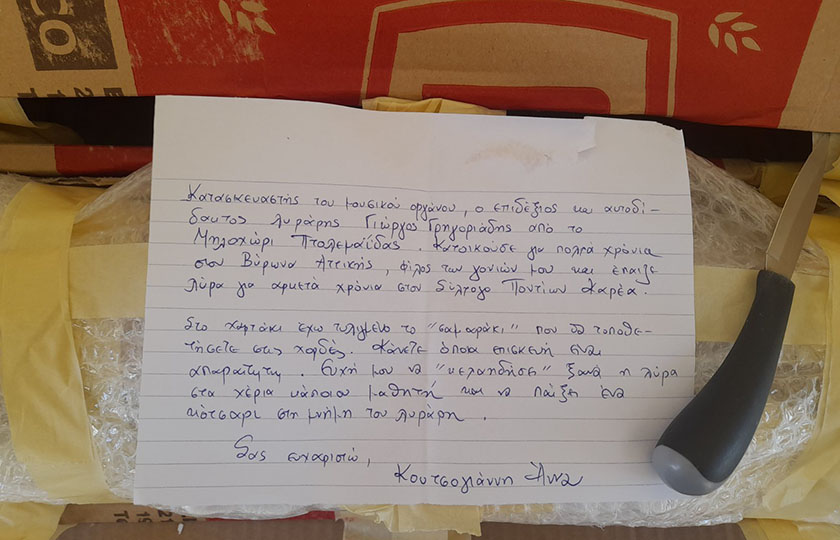 CO
Κατασκευαστής του μουσικού οργάνου, ο επιδέξιος και αυτοδί-
δακτος λυράρης Γιώργος Γρηγοριάδης από το
Μηλοχώρι Πτολεμαΐδας. Κατοικούσε για πολλά χρόνια
στον Βύρωνα Αττικής, φίλος των γονιών μου και έπαιζε
λύρα για αρκετά χρόνια στον Σύλλογο Ποντίων Καρέα.
Στο χαρτάκι έχω τυλιγμένο το "σαμαράκι" που θα τοποθε-
τήσετε στις χορδές. Κάνετε όποια επισκευή είναι
απαραίτητη. Ευχή μου να "κελαηδήσει" ξανά η λύρα
στα χέρια κάποιου μαθητή και να παίξει ένα
κότσαρι στη μνήμη του λυράρη.
Σας ευχαριστώ,
Κουτσογιάννη Άννα